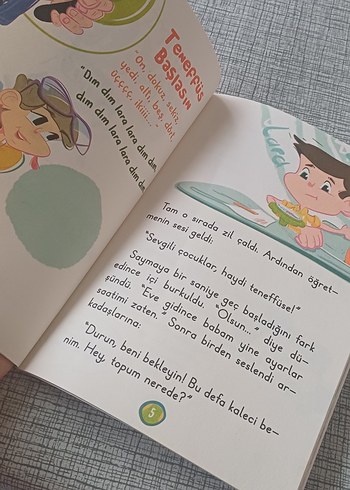 Teneffüs
Başlasın
"On, dokuz, sekiz,
yedi, altı, beş, dört,
üçççç, ikiiii..."
"Dım dım lara lara dım dım
dım dım lara lara dım dım
Tam o sırada zil çaldı. Ardından öğret-
menin sesi geldi:
"Sevgili çocuklar, haydi teneffüse!"
Saymaya bir saniye geç başladığını fark
edince içi burkuldu. "Olsun..." diye dü-
şündü. "Eve gidince babam yine ayarlar
saatimi zaten." Sonra birden seslendi ar-
kadaşlarına:
"Durun, beni bekleyin! Bu defa kaleci be-
nim. Hey, topum nerede?"
5